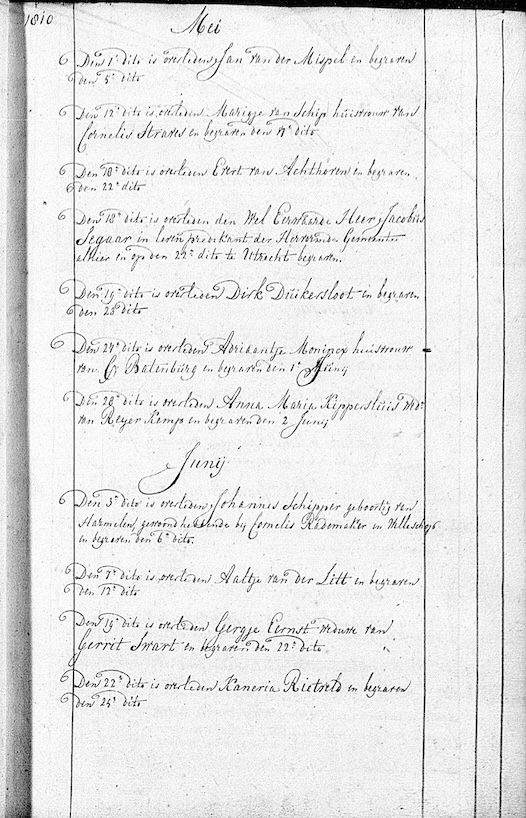 1810
Mei
Den 1e dito is overleden Jan van der Mispel en begraven
den 5e dito
Den 12e dito is overleden Marigje van Schip huisvrouw van
Cornelis Straves en begraven den 17e dito
Den 18e dito is overleden Evert van Achthoven en begraven
den 22e dito
Den 18e dito is overleden den Wel Eerwaarde Heer Jacobus
Segaar in leven predekant der Hervormde Gemeente
alhier en op den 22e dito te Utrecht begraven.
Den 19e dito is overleden Dirk Dúkersloot en begraven
den 23e dito
Den 27e dito is overleden Adriaantje Moninex huisvrouw
van Batenburg en begraven den 1e Junij
Den 28e dito is overleden Anna Maria Kippersluis Wede
van Reyer Kemp en begraven den 2 Junij
Junij
Den 3e dito is overleden Johannes Schipper geboortig van
Harmelen, gewoond hebbende bij Cornelis Rademaker in Willeschop
en begraven den 6e dito.
Den 7e dito is overleden Aaltje van der Litt en begraven
den 12e dito
Den 19e dito is overleden Gergje Eernst weduwe van
Gerrit Swart en begraven den 22e dito
Den 22e dito is overleden Kaneria Rietveld en begraven
den 25e dito